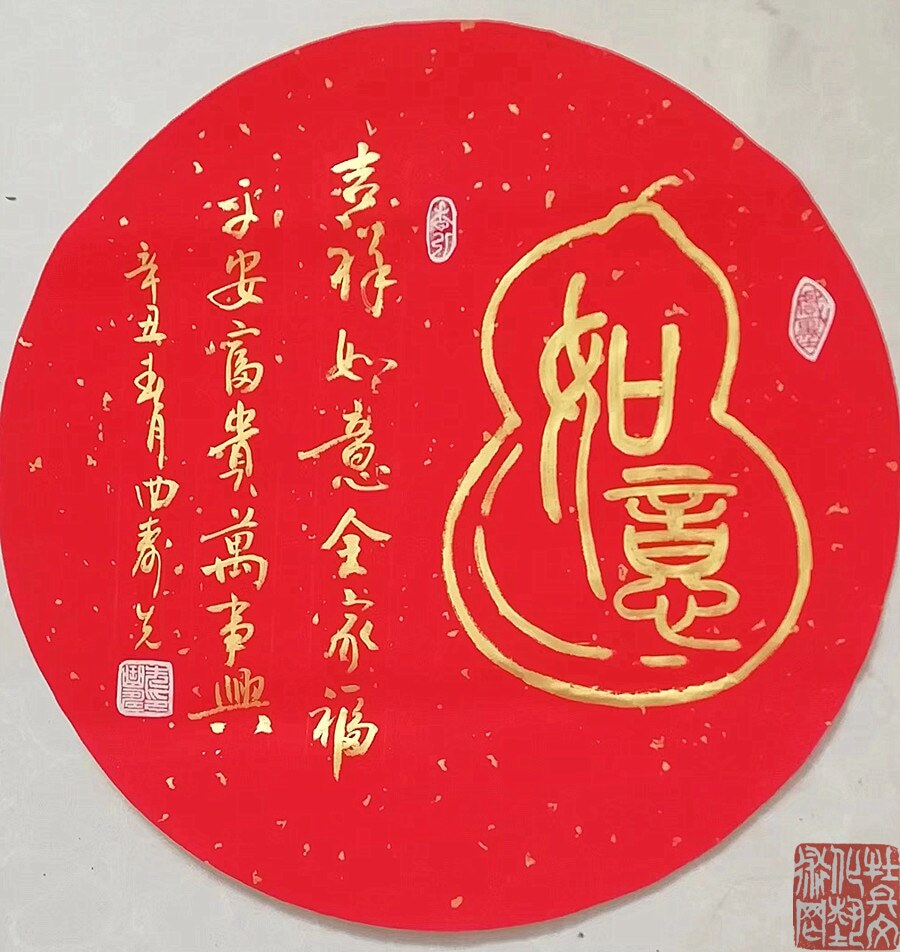 如意
吉祥如意全家福
平安富貴萬事興
辛丑春月曲壽光